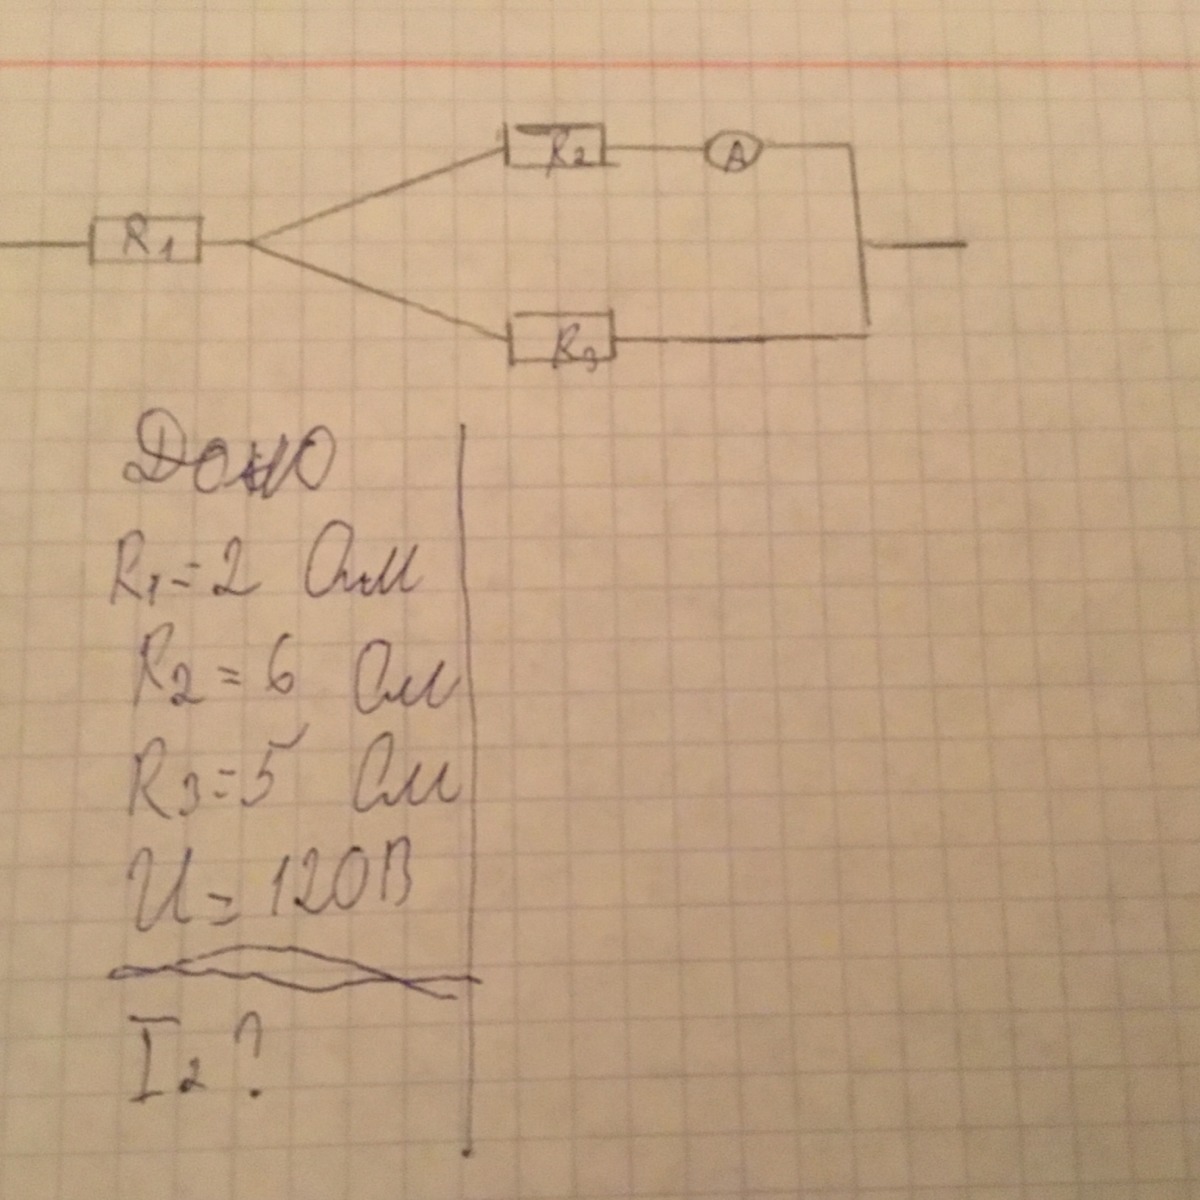 R2
A
R1
R3
Дано
R1 = 2 Ом
R2 = 6 Ом
R3 = 5 Ом
U = 120В
I2 ?